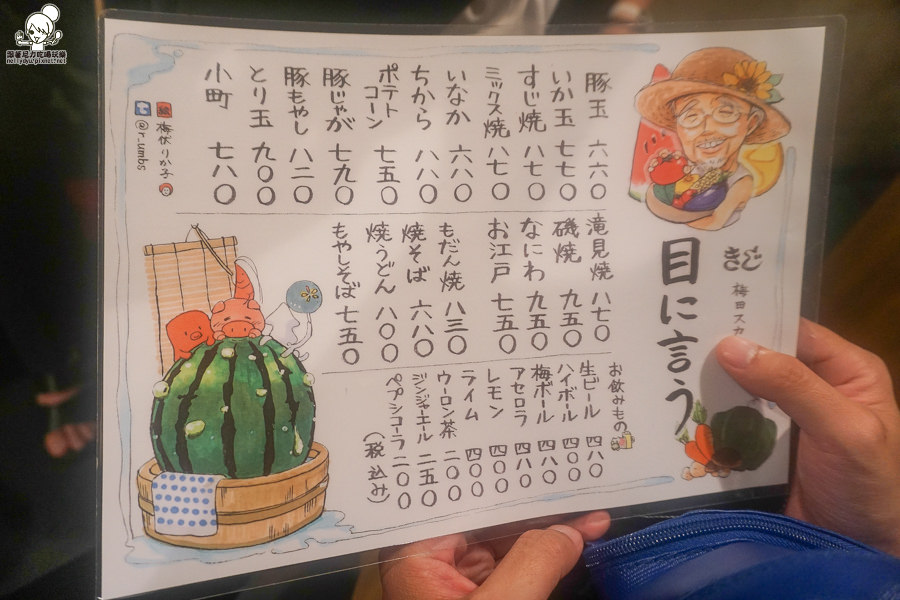 きじ
梅田スカ
目に言う
豚玉 六六〇
いか玉 七七〇
すじ焼 八七〇
ミックス焼 八七〇
いなか 六六〇
ちから 八八〇
ポテトコーン 七五〇
豚じゃが 七九〇
豚もやし 八二〇
とり玉 九〇〇
小町 七八〇
滝見焼 八七〇
磯焼 九五〇
なにわ 九五〇
お江戸 七五〇
もだん焼 八三〇
焼そば 六八〇
焼うどん 八〇〇
もやしそば 七五〇
お飲みもの
生ビール 四八〇
ハイボール 四〇〇
梅ボール 四八〇
アセロラ 四八〇
レモン 四〇〇
ライム 四〇〇
ウーロン茶 二〇〇
ジンジャエール 二五〇
ペプシコーラ 二〇〇
（税込み）
梅伏りか子
@r_umbs